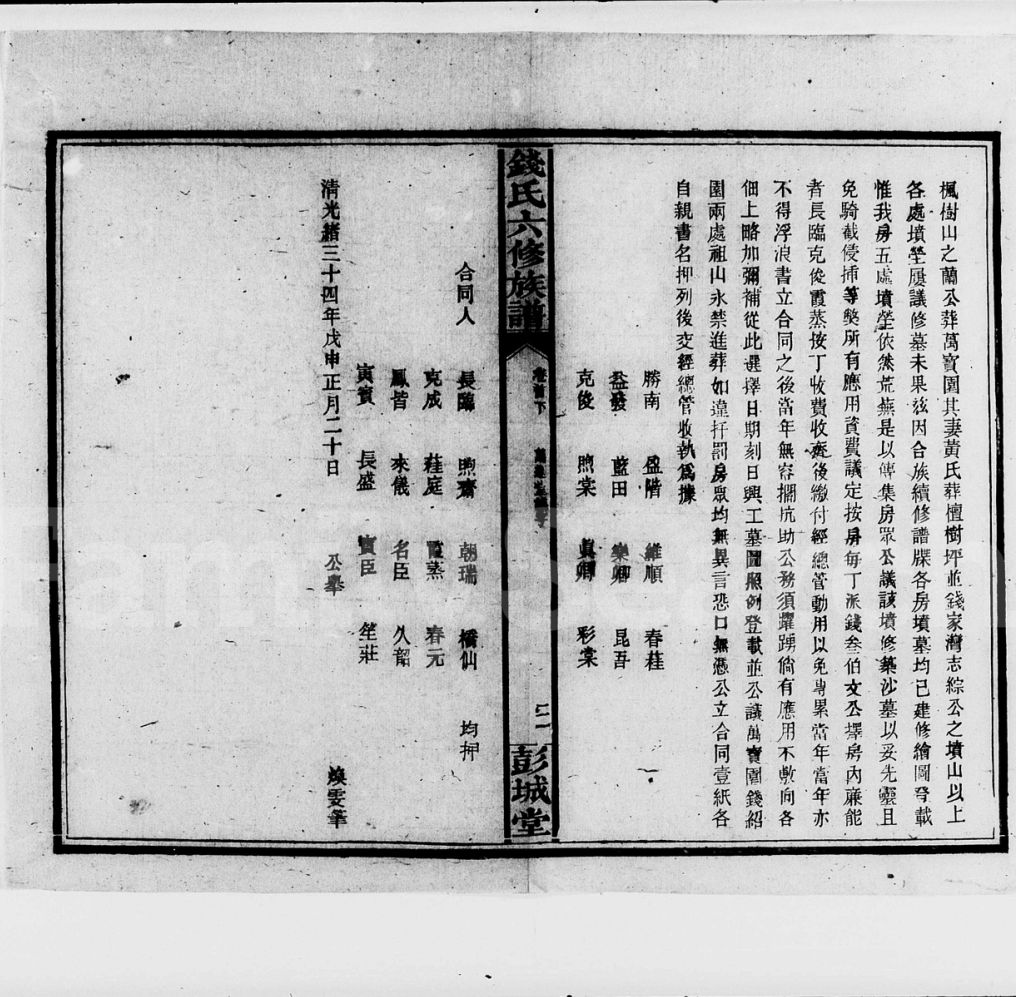 楓樹山之蘭公葬萬寶園其妻黃氏葬檀樹坪並錢家灣志綜公之墳山以上
各處墳塋屢議修墓未果茲因合族續修譜牒各房墳墓均已建修繪圖登載
惟我房五處墳塋依然荒蕪是以傳集房眾公議該墳修築沙墓以妥先靈且
免騎截侵揷等獘所有應用資費議定按房每丁派錢叁伯文公擇房內廉能
者長臨克俊霞蒸按丁收費收齊後繳付經總管動用以免專累當年當年亦
不得浮浪書立合同之後當年無容擱抗助公務須躍踴倘有應用不敷向各
佃上略加彌補從此選擇日期刻日興工墓圖照例登載並公議萬寶園錢紹
園兩處祖山永禁進葬如違扦罰房眾均無異言恐口無憑公立合同壹紙各
自親書名押列後交經總管收執爲據
勝南 盈階 維順 春桂
益發 藍田 樂卿 昆吾
克俊 煦棠 眞卿 彩棠
錢氏六修族譜 卷首下 三 彭城堂
合同人 長臨 煦齋 朝瑞 橋仙 均押
克成 桂庭 霞蒸 春元
鳳皆 來儀 名臣 久韶
寅賓 長盛 寳臣 笙莊
清光緒三十四年戊申正月二十日 公舉 煥雯筆